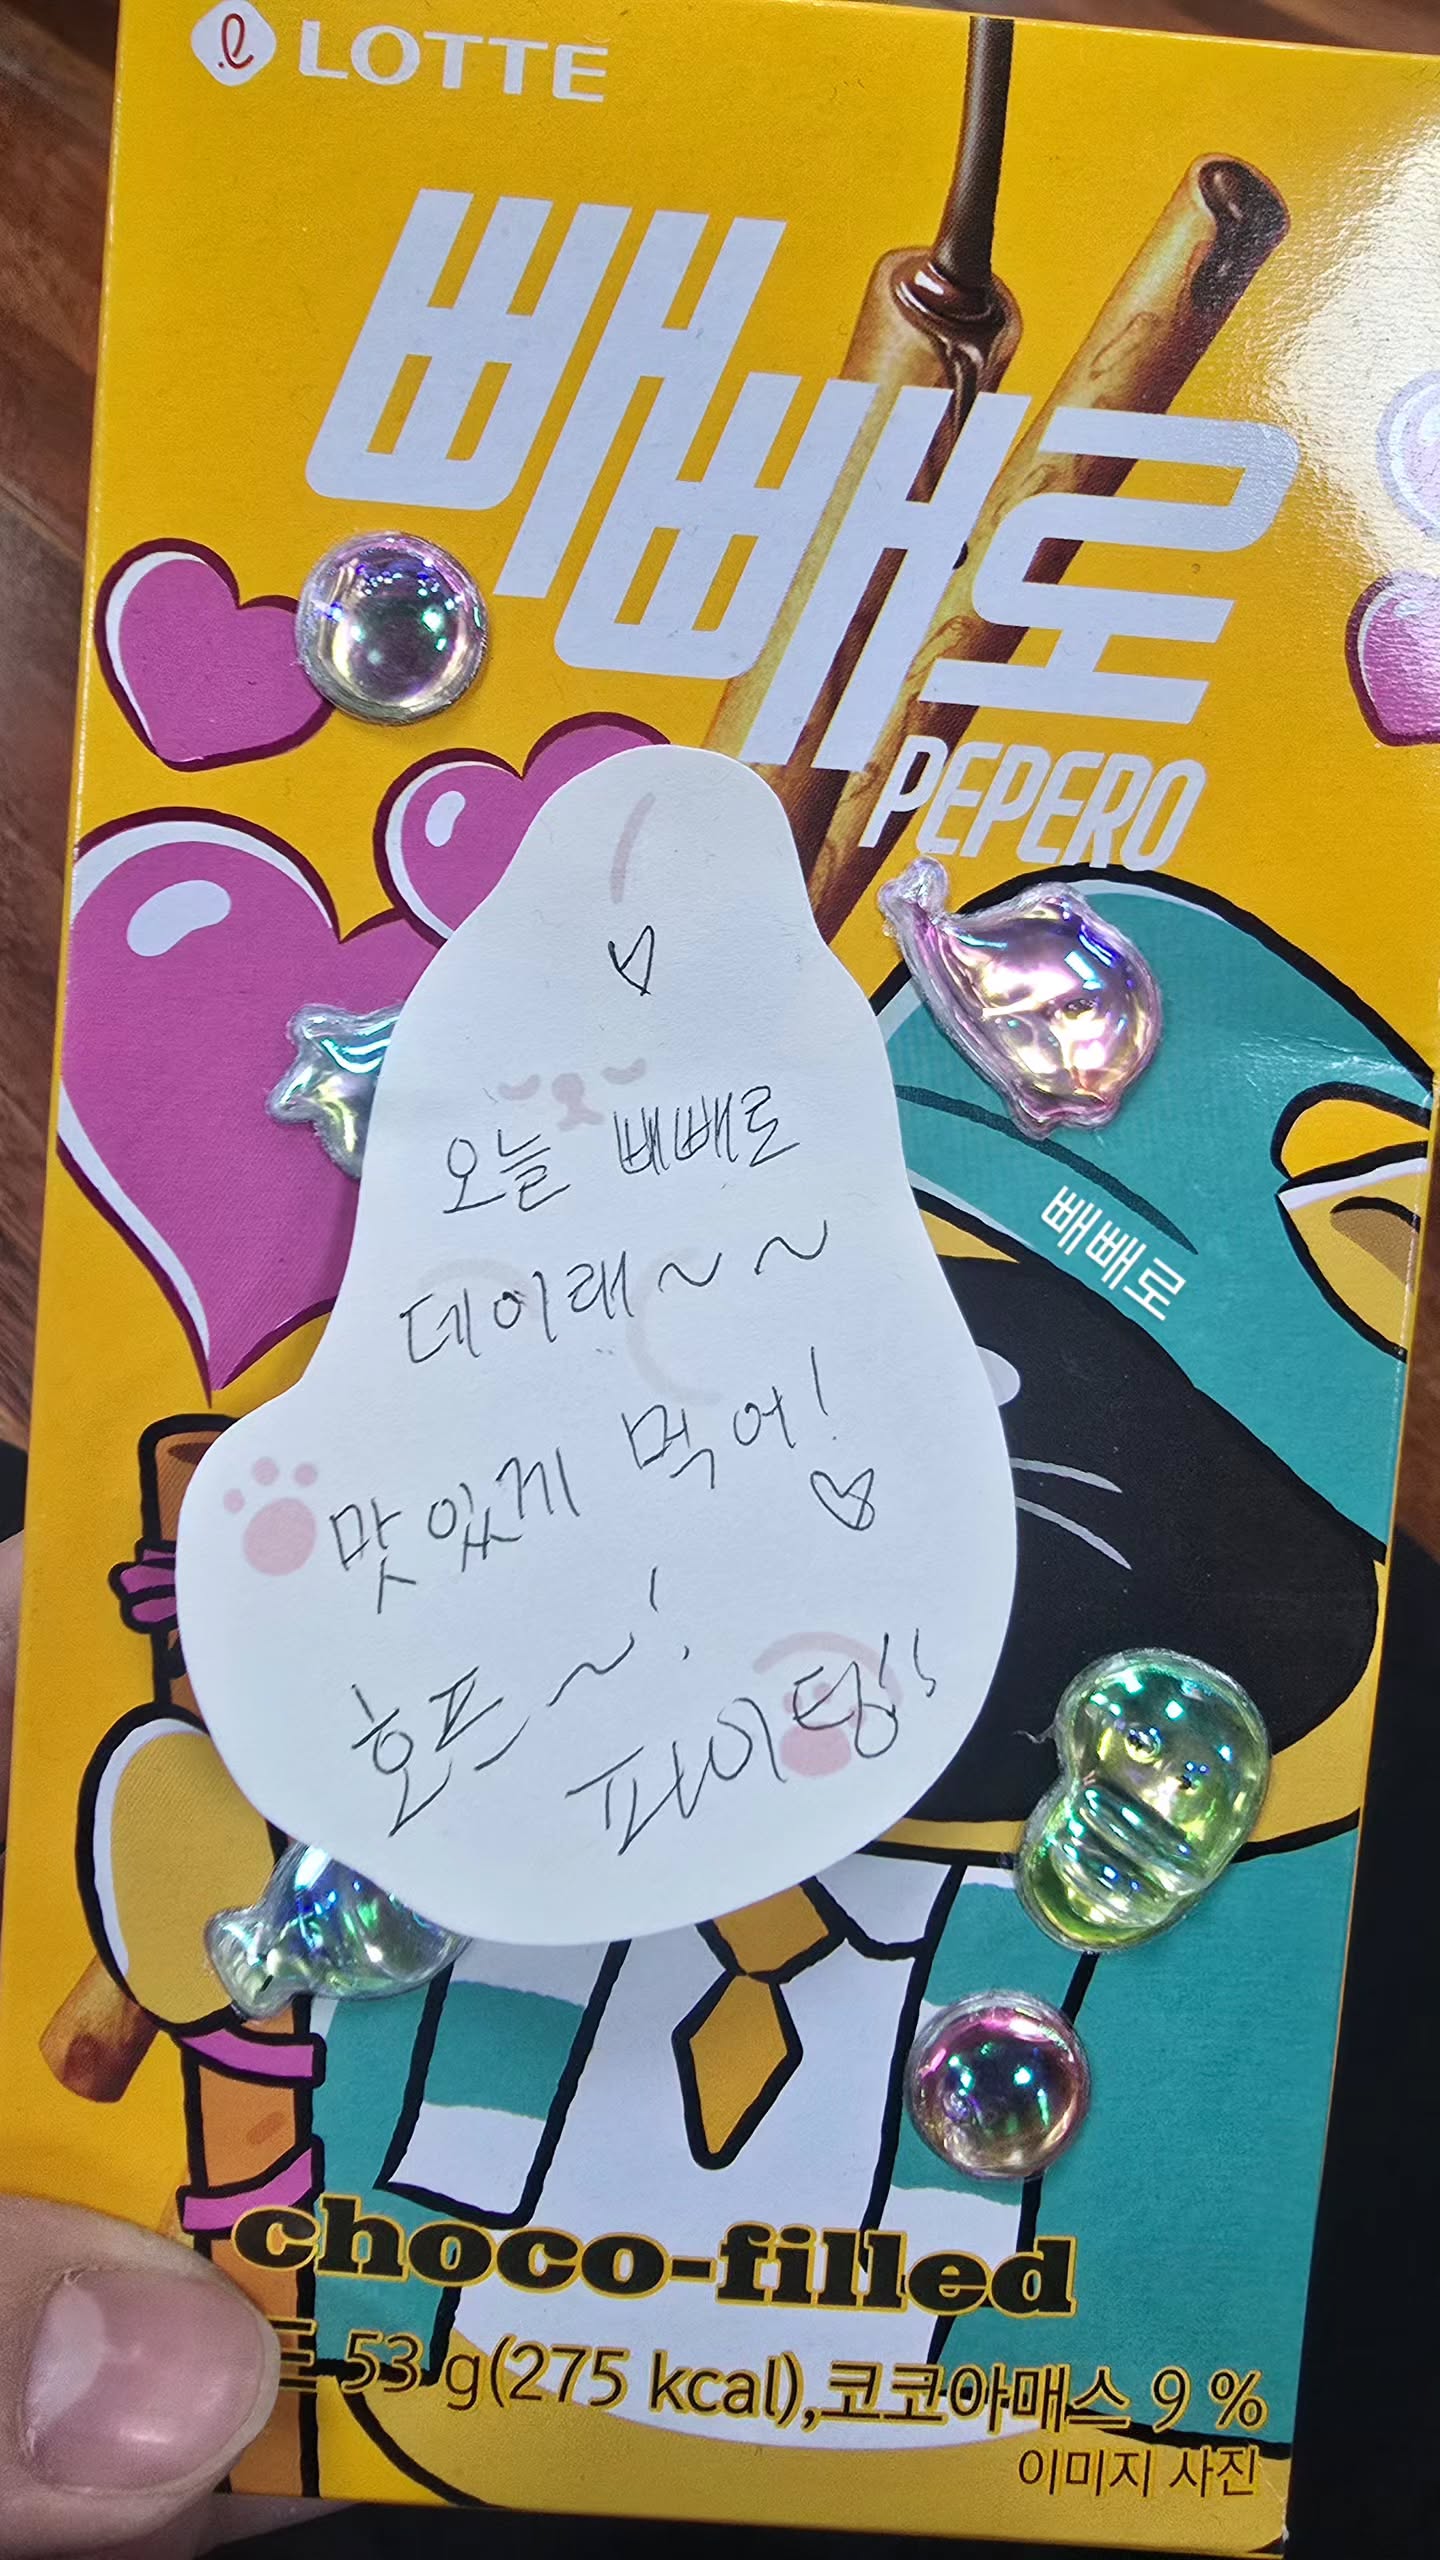 LOTTE
빼빼로
PEPERO
♡
오늘 빼빼로
데이래~~
맛있게 먹어!
♡
호프~!
파이팅!!
빼빼로
choco-filled
53 g(275 kcal),코코아매스 9 %
이미지 사진